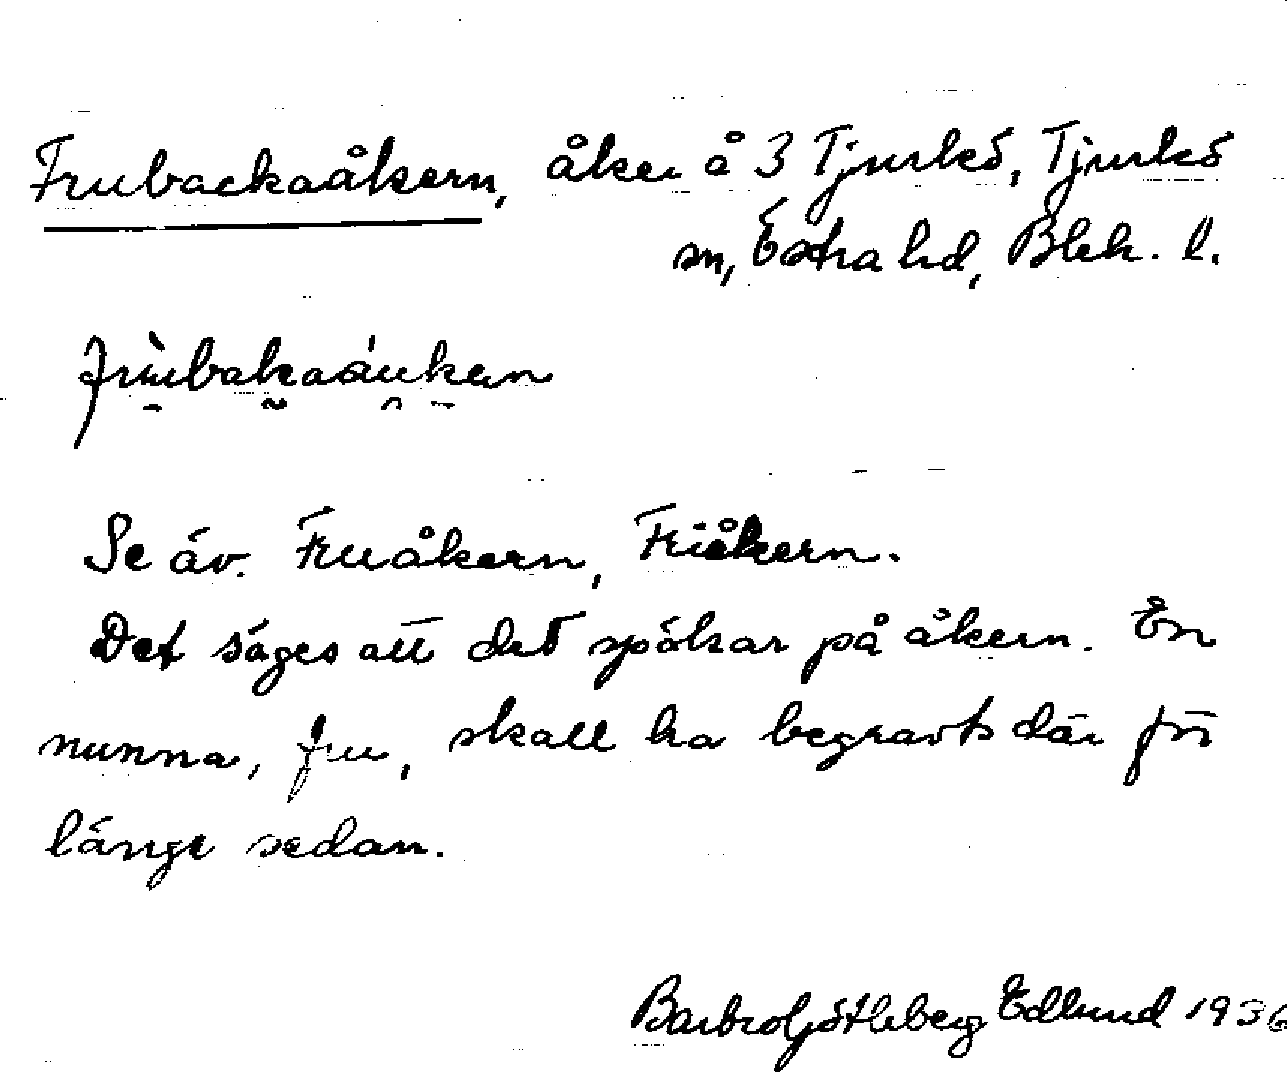 Frubackaåkern, åker å 3 Tjurkö, Tjurkö
sn, Östra hd, Blek. l.
Se äv. Fruåkern, Friåkern.
Det säges att det spökar på åkern. En
nunna, fru, skall ha begravts där för
länge sedan.
Barbro Götleberg Edlund 1936